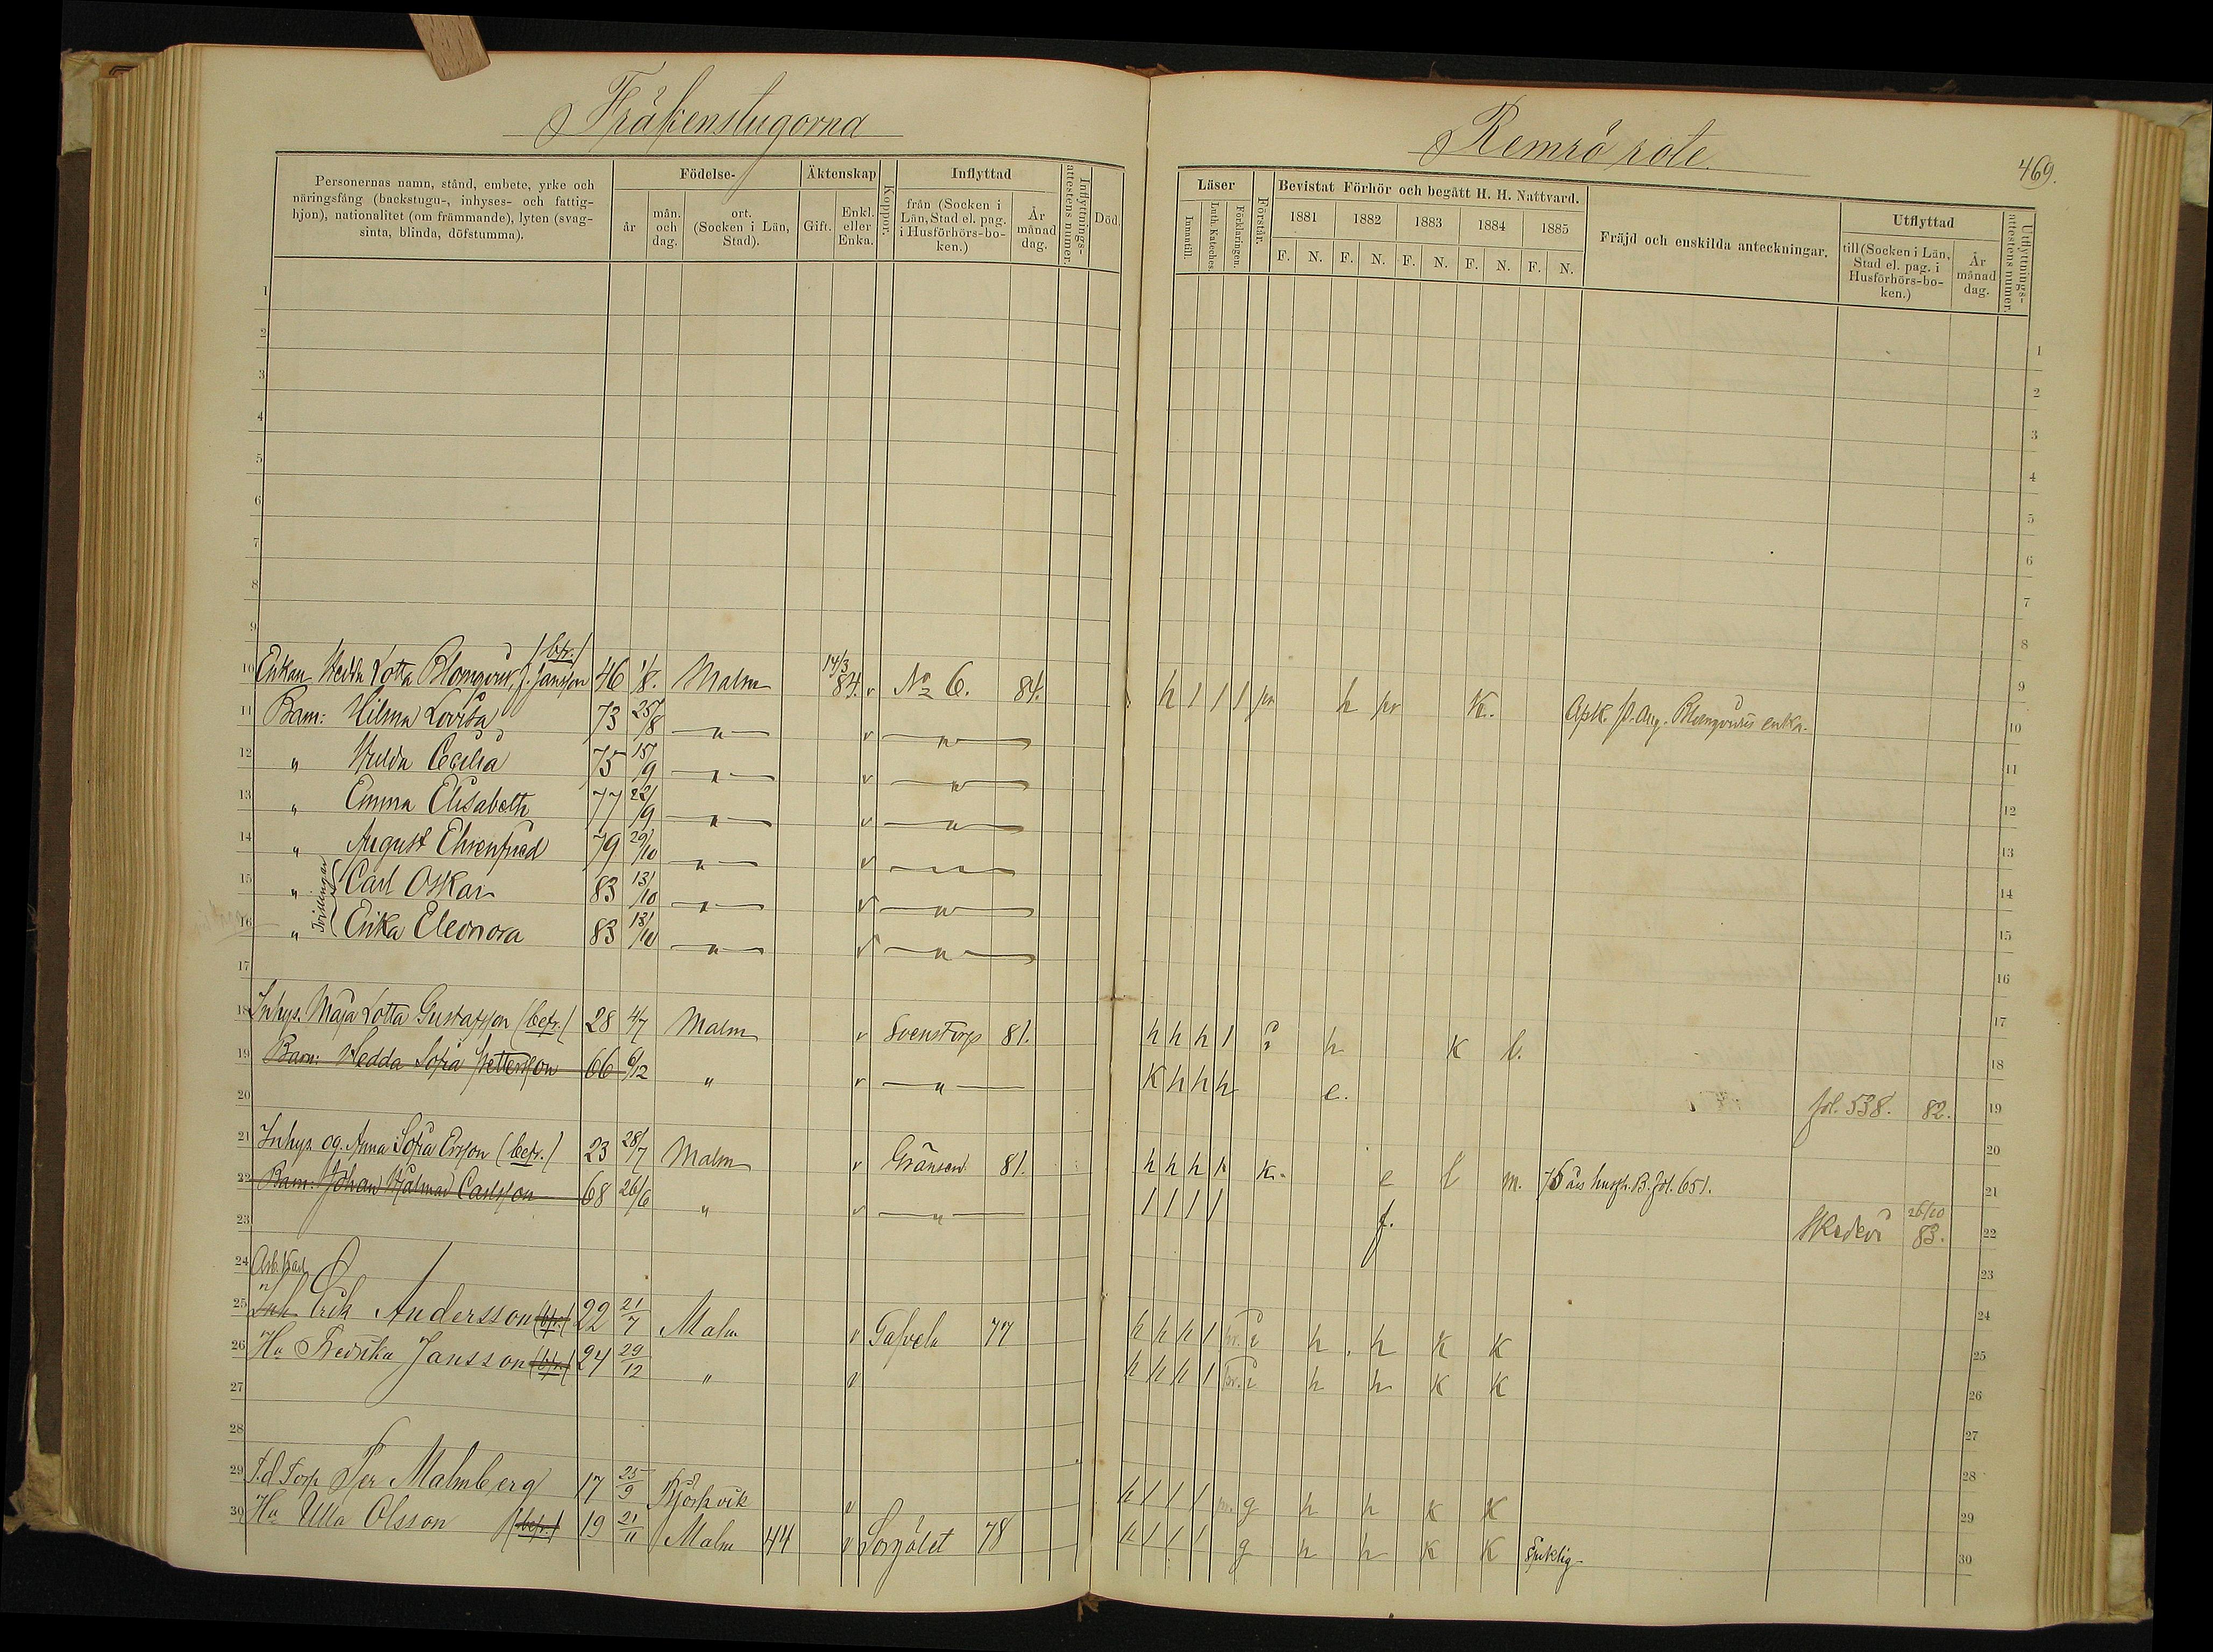 Fräkenstugorna
Remrö rote.
469.
Personernas namn, stånd, embete, yrke och näringsfång (backstugu-, inhyses- och fattighjon), nationalitet (om främmande), lyten (svagsinta, blinda, döfstumma).
Födelse-
år
mån. och dag.
ort. (Socken i Län, Stad).
Äktenskap
Gift.
Enkl. eller Enka.
Koppor.
Inflyttad
från (Socken i Län, Stad el. pag. i Husförhörs-boken.)
År månad dag.
Inflyttnings-attestens numer.
Död.
Läser
Innantill.
Luth. Kateches.
Förklaringen.
Förstår.
Bevistat Förhör och begått H. H. Nattvard.
1881 1882 1883 1884 1885
F. N. F. N. F. N. F. N. F. N.
Fräjd och enskilda anteckningar.
Utflyttad
till (Socken i Län, Stad el. pag. i Husförhörs-boken.)
År månad dag.
Utflyttnings-attestens numer.
1
2
3
4
5
6
7
8
9
10 Enkan Hedda Lotta Blomqvist, f. Jansson (befr.) 46 1/8. Malm 14/3 84. v No 6. 84. h 1 1 1 h K. enka.
11 Barn: Hilma Lovisa 73 25/8 — " — v — " —
12 " Hulda Cecilia 75 15/9 — " — v — " —
13 " Emma Elisabeth 77 22/9 — " — v — " —
14 " August Ehrenfried 79 29/10 — " — v — " —
15 " Tvillingar Carl Oskar 83 13/10 — " — v — " —
16 " Erika Eleonora 83 13/10 — " — v — " —
17
18 Inhys. Maja Lotta Gustafsson (befr.) 28 4/7 Malm v Svenstorp 81. h h h 1 h K l.
19 Barn: Hedda Sofia Pettersson 66 6/12 " v — " — K h h h e. fol. 538. 82.
20
21 Inhys. og. Anna Sofia Ersson (befr.) 23 28/7 Malm v Gränsen 81. h h h h K. e l m. 76 års husfh. B. fol. 651.
22 Barn: Johan Hjalmar Carlsson 68 26/6 " v — " — 1 1 1 1 f. Skedevi 26/10 83.
23
24 Arb. Karl
25 Inh Erik Andersson (bfr.) 22 21/7 Malm v 77 h h h 1 h h K K
26 Hu Fredrika Jansson (bfr.) 24 29/12 " v h h h 1 h h K K
27
28
29 F.d Torp Per Malmberg 17 25/9 Björkvik v h 1 1 1 g h h K K
30 Hu Ulla Olsson (befr.) 19 21/11 Malm 44 v 78 h 1 1 1 g h h K K Sjuklig